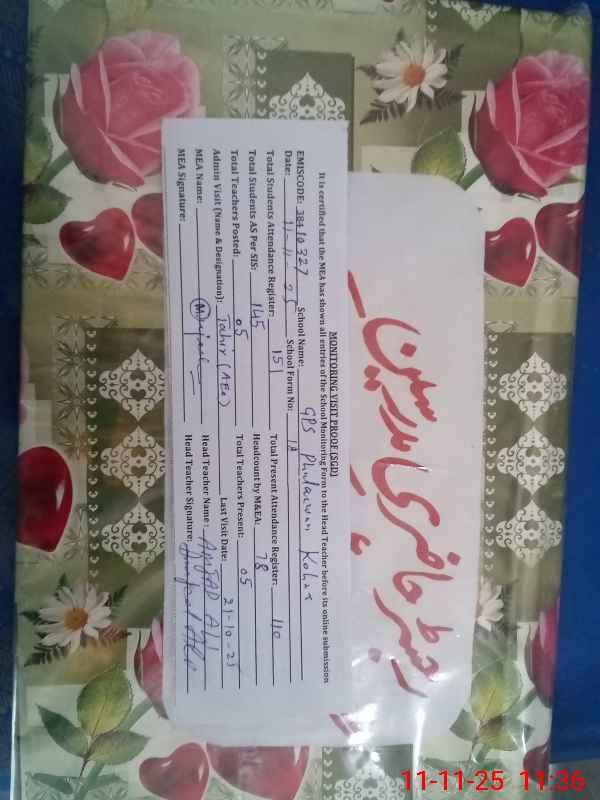 MONITORING VISIT PROOF (SGD)
It is certified that the MEA has shown all entries of the School Monitoring Form to the Head Teacher before its online submission
EMISCODE: 38410327 School Name: GPS Phularwan Kohna
Date: 11-11-25 School Form No: 12
Total Students Attendance Register: 151 Total Present Attendance Register: 110
Total Students AS Per SIS: 145 Headcount by M&EA: 78
Total Teachers Posted: 05 Total Teachers Present: 05
Admin Visit (Name & Designation): Tahir (AEO) Last Visit Date: 21-10-25
MEA Name: Head Teacher Name: AMJAD ALI
MEA Signature: Head Teacher Signature:
رجسٹر حاضری مدرسین
11-11-25 11:36